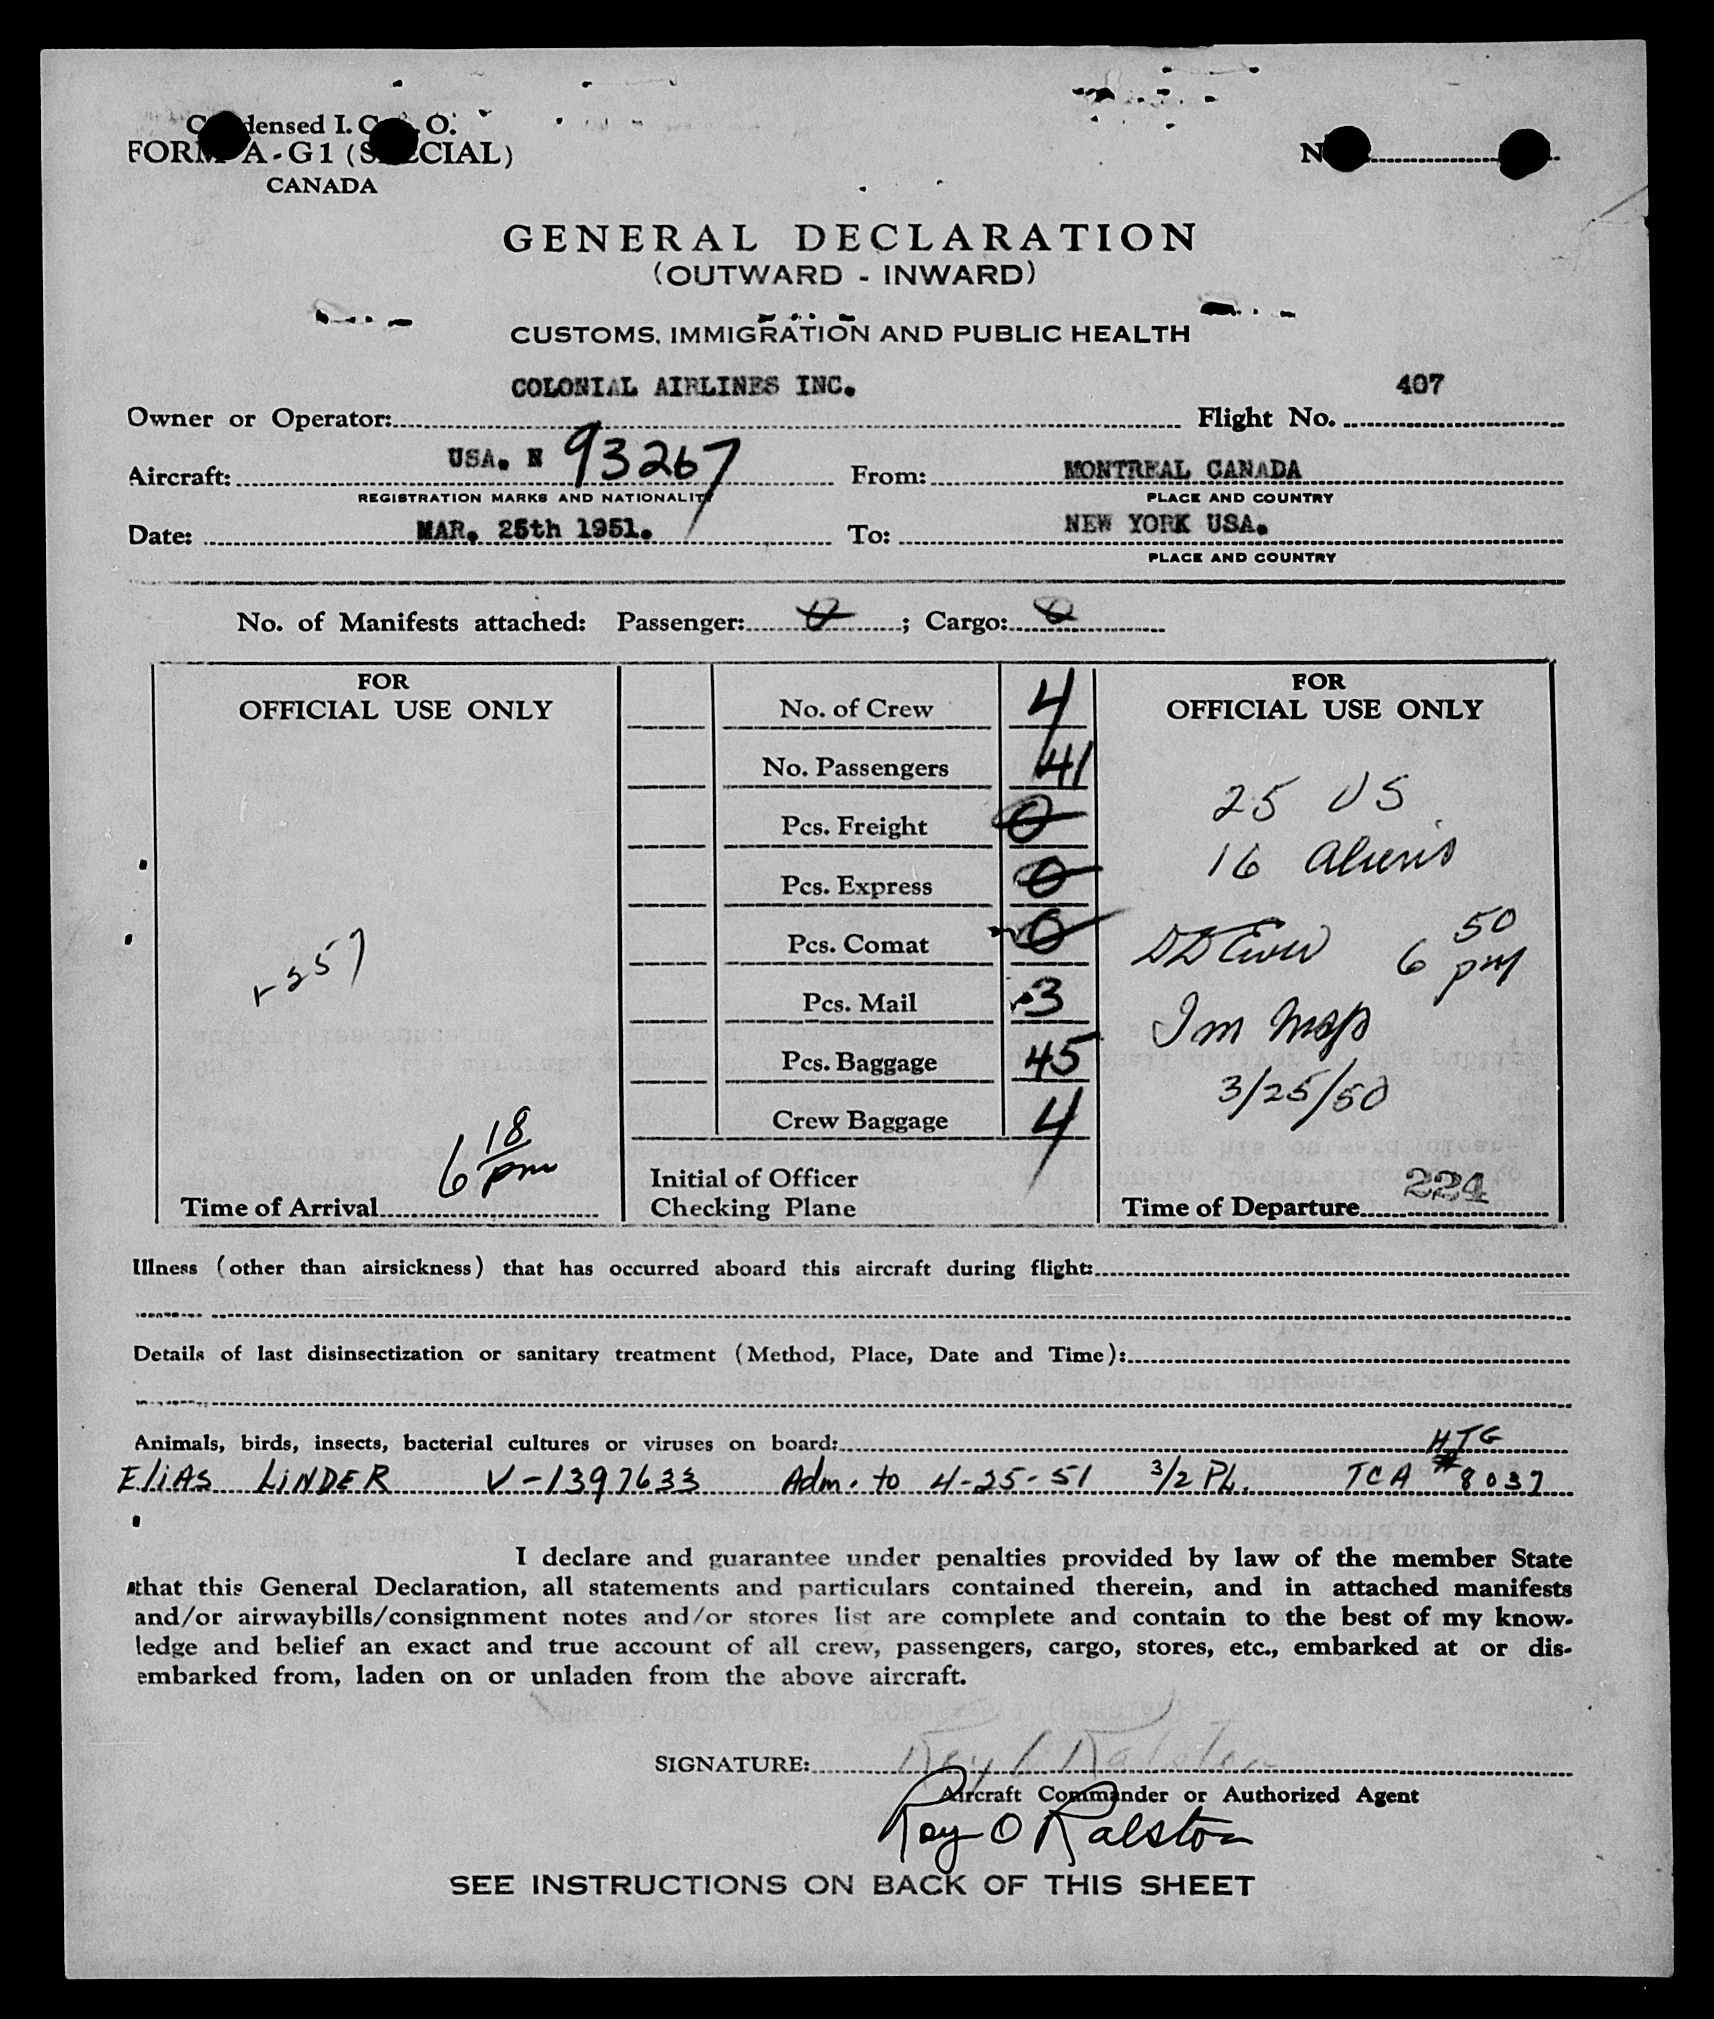 Condensed I. C. A. O.
FORM A-G1 (SPECIAL)
CANADA
GENERAL DECLARATION
(OUTWARD - INWARD)
CUSTOMS, IMMIGRATION AND PUBLIC HEALTH
COLONIAL AIRLINES INC. 407
Owner or Operator: Flight No.
USA. N 93267 MONTREAL CANADA
Aircraft: From:
REGISTRATION MARKS AND NATIONALITY PLACE AND COUNTRY
MAR. 25th 1951. NEW YORK USA.
Date: To:
PLACE AND COUNTRY
No. of Manifests attached: Passenger: 0 ; Cargo: 0
FOR
OFFICIAL USE ONLY
No. of Crew 4
No. Passengers 41
Pcs. Freight 0
Pcs. Express 0
Pcs. Comat 0
Pcs. Mail 3
Pcs. Baggage 45
Crew Baggage 4
FOR
OFFICIAL USE ONLY
25 US
16 Aliens
6 50 pm
Im Insp
3/25/50
257
6 18 pm
Time of Arrival
Initial of Officer
Checking Plane
224
Time of Departure
Illness (other than airsickness) that has occurred aboard this aircraft during flight:
Details of last disinsectization or sanitary treatment (Method, Place, Date and Time):
Animals, birds, insects, bacterial cultures or viruses on board: HTG
ELIAS LINDER V-1397633 Adm. to 4-25-51 3/2 PL. TCA # 8037
I declare and guarantee under penalties provided by law of the member State
that this General Declaration, all statements and particulars contained therein, and in attached manifests
and/or airwaybills/consignment notes and/or stores list are complete and contain to the best of my know-
ledge and belief an exact and true account of all crew, passengers, cargo, stores, etc., embarked at or dis-
embarked from, laden on or unladen from the above aircraft.
SIGNATURE: Roy O Ralston
Aircraft Commander or Authorized Agent
Roy O Ralston
SEE INSTRUCTIONS ON BACK OF THIS SHEET